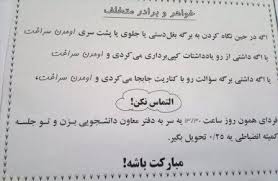 خواهر و برادر متخلف
اگه در حین نگاه کردن به برگه بغل‌دستی یا جلوی یا پشت سری اومدن سراغت
یا اگه داشتی از رو یادداشتات کپی‌برداری می‌کردی و اومدن سراغت،
یا اگه داشتی برگه سؤالت رو با کناریت جابجا می‌کردی و اومدن سراغت
التماس نکن!
فردای همون روز ساعت ۱۳/۳۰ یه سر به دفتر معاون دانشجویی بزن و تو جلسه
کمیته انضباطی یه ۰/۲۵ تحویل بگیر.
مبارکت باشه!